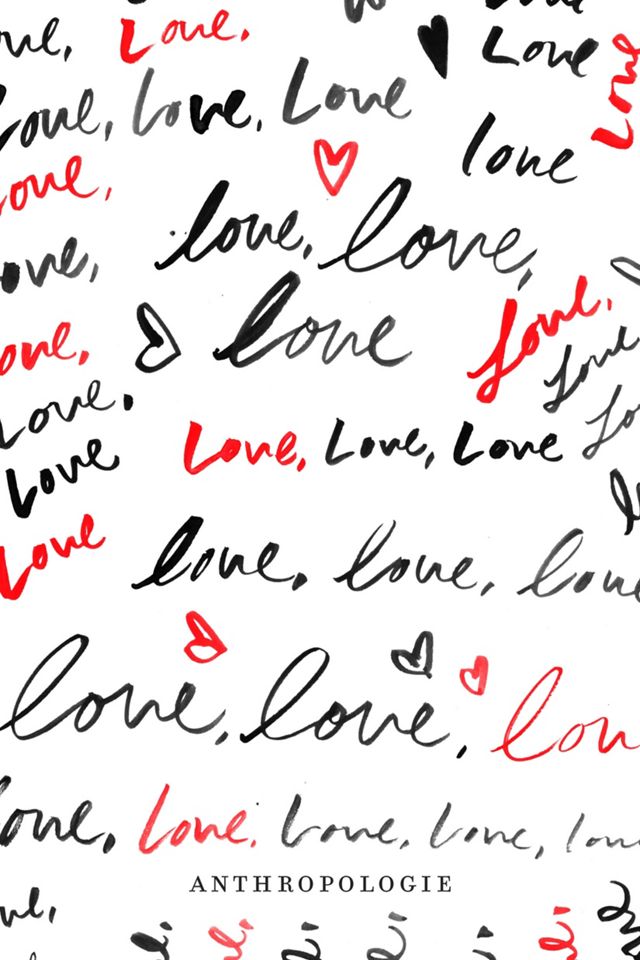 Love
ove, Love. Love
Love
Love, Love, Love
love
Love,
love, love,
ove,
love
Love,
ove,
Love
Love.
Love, Love, Love
Love
Love
love, love, love
love, love, lov
love, Love. Love, Love, love
ANTHROPOLOGIE